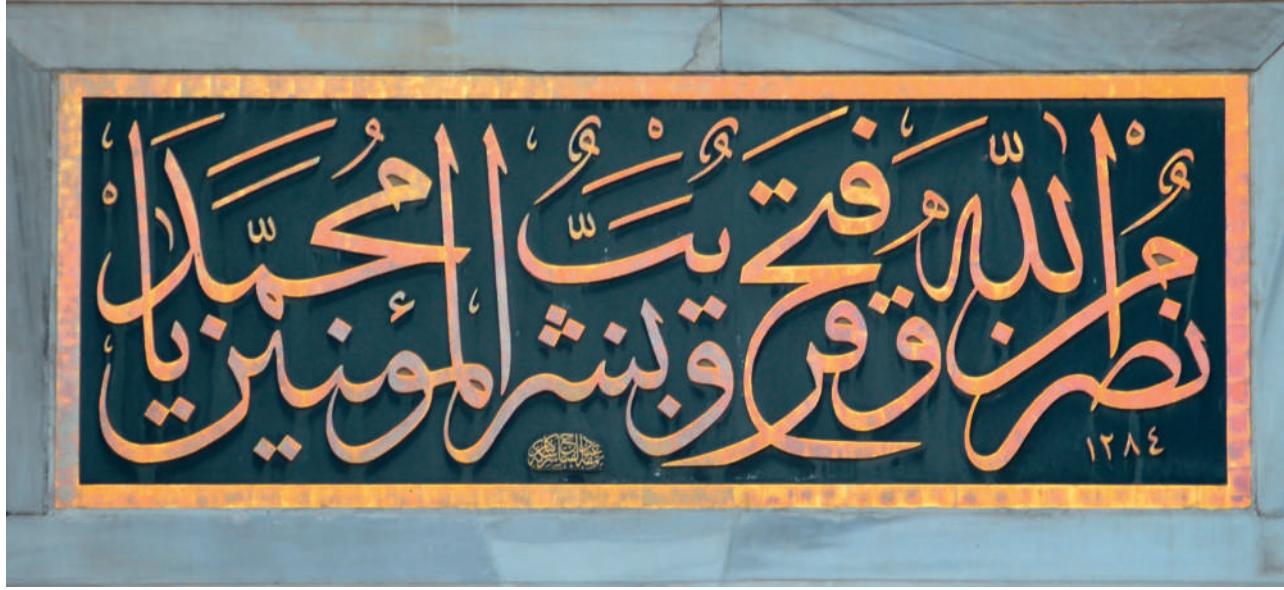 نَصْرٌ مِنَ اللّٰهِ وَفَتْحٌ قَرِيبٌ وَبَشِّرِ الْمُؤْمِنِينَ يَا مُحَمَّد
١٢٨٤